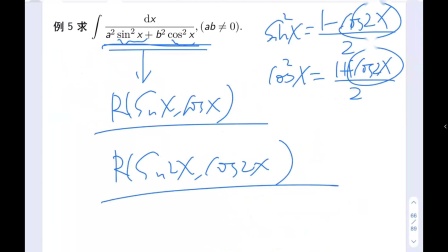 例 5 求 ∫ dx / (a² sin² x + b² cos² x), (ab ≠ 0).
sin²x = (1 - cos2x) / 2
cos²x = (1 + cos2x) / 2
R(Sinx, cosx)
R(Sin2x, cos2x)
66
89